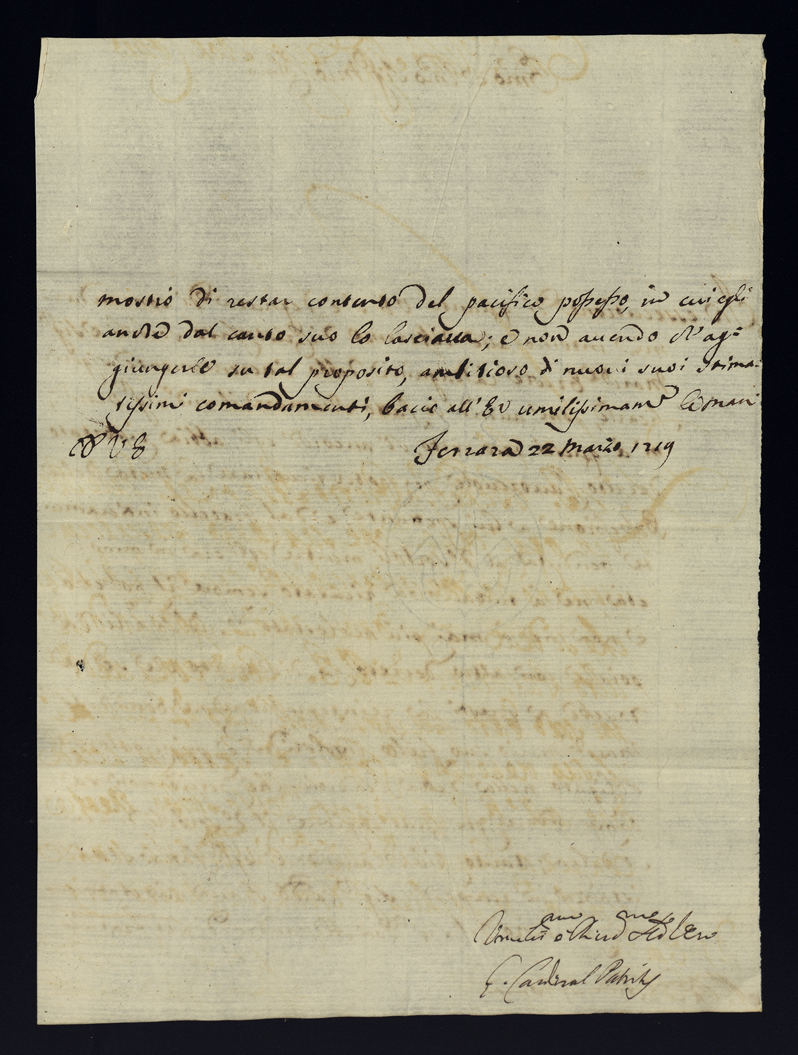 mostrò di restar contento del pacifico possesso, in cui egli
anche dal canto suo lo lasciava; e non avendo ch'ag=
giungerle su tal proposito, ambitioso di nuovi suoi stima=
tissimi comandamenti, bacio all'Ev umilissimamte le mani
Di V E
Ferrara 22 Marzo 1719
Card.al Patritij